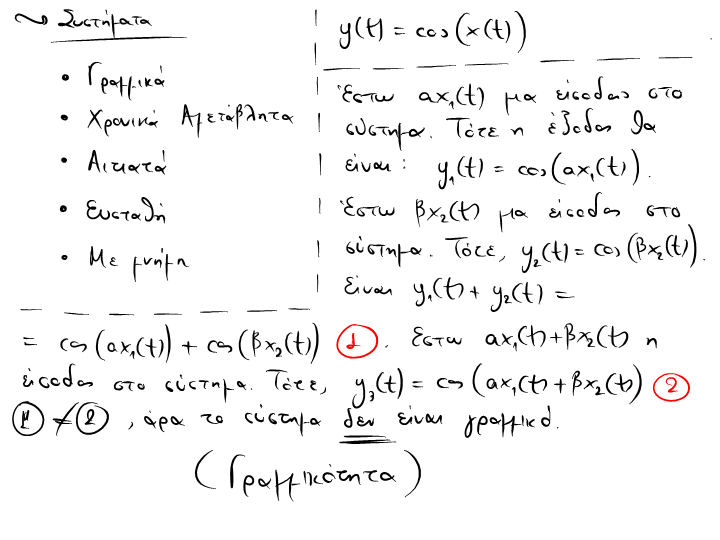 Συστήματα
• Γραμμικά
• Χρονικά Αμετάβλητα
• Αιτιατά
• Ευσταθή
• Με μνήμη
y(t) = cos(x(t))
Έστω αx₁(t) μια είσοδος στο
σύστημα. Τότε η έξοδος θα
είναι: y₁(t) = cos(αx₁(t)).
Έστω βx₂(t) μια είσοδος στο
σύστημα. Τότε, y₂(t) = cos(βx₂(t)).
Είναι y₁(t) + y₂(t) =
= cos(αx₁(t)) + cos(βx₂(t)) ①. Έστω αx₁(t) + βx₂(t) η
είσοδος στο σύστημα. Τότε, y₃(t) = cos(αx₁(t) + βx₂(t)) ②
① ≠ ②, άρα το σύστημα δεν είναι γραμμικό.
(Γραμμικότητα)